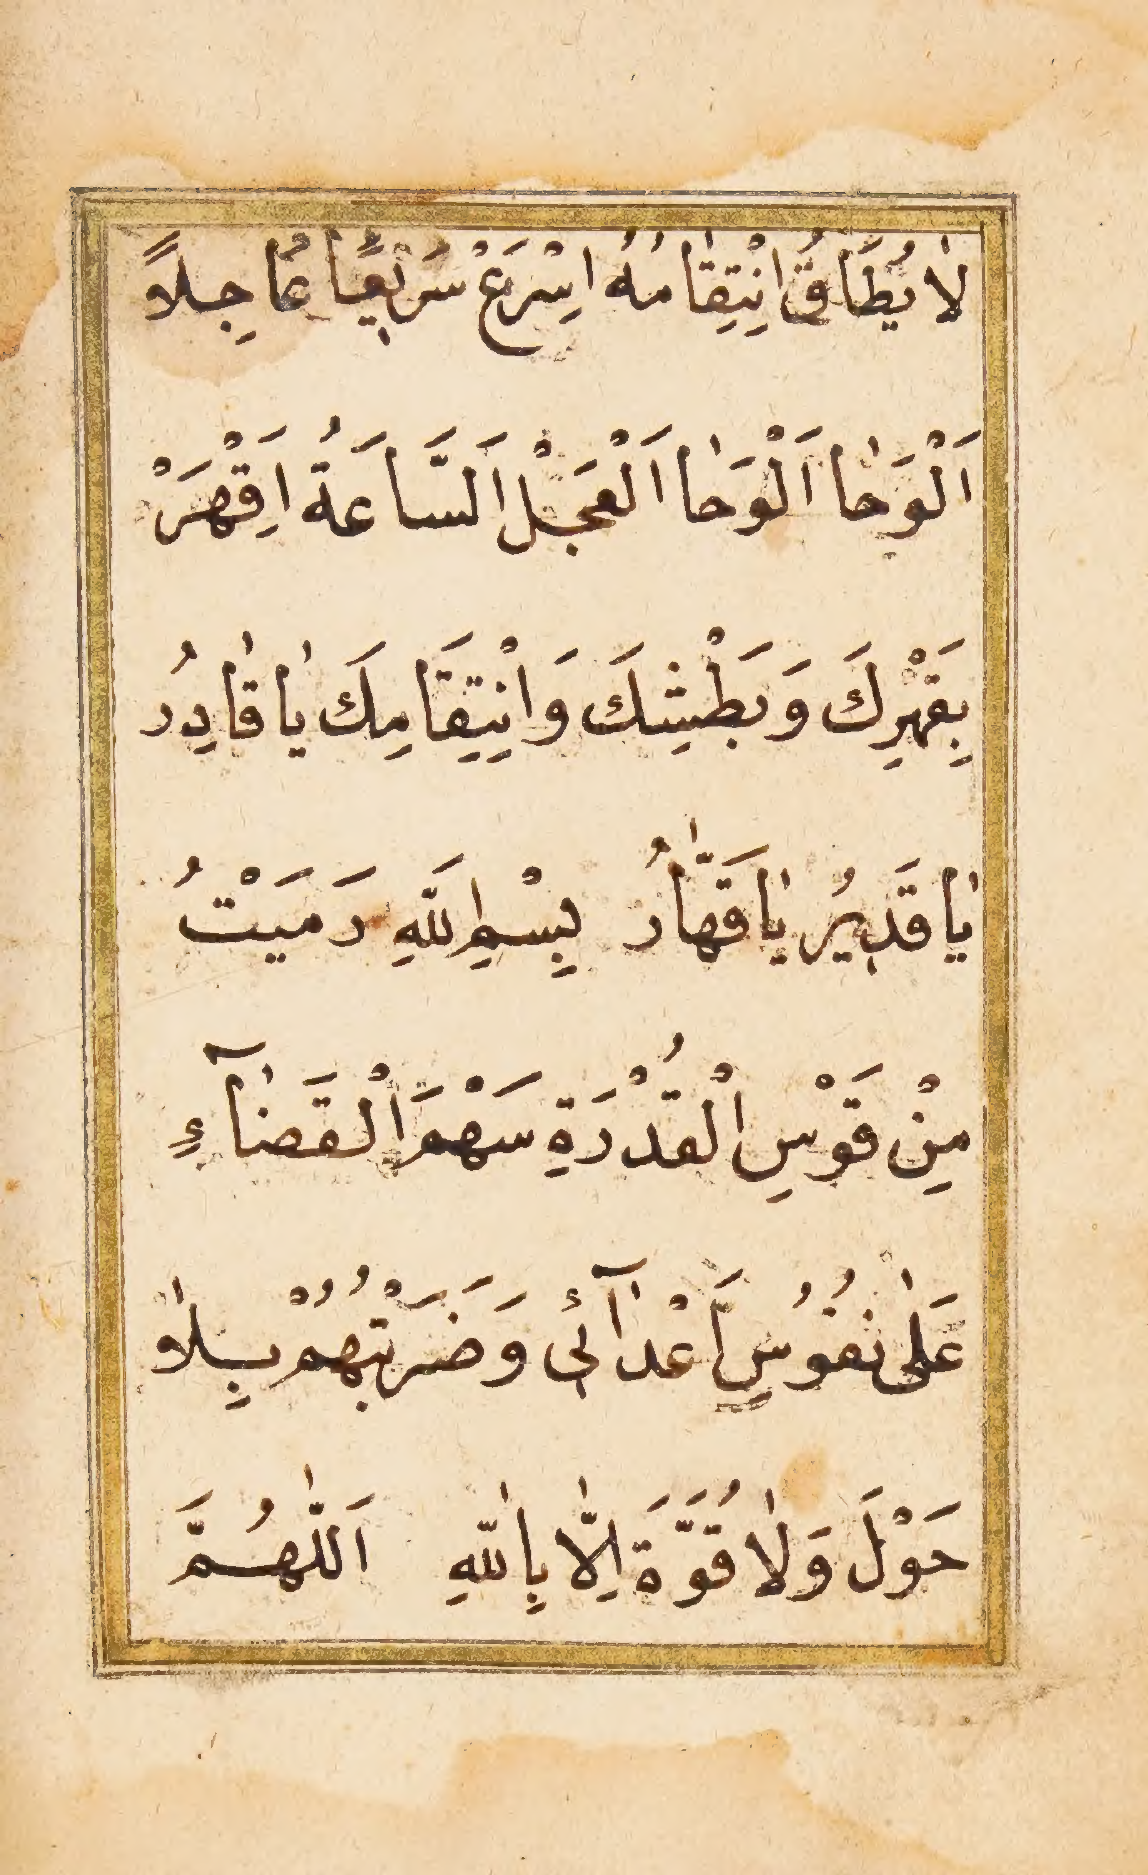 لَا يُطَاقُ اِنْتِقَامُهُ اِسْرَعْ سَرِيعًا عَاجِلًا
اَلْوَحَا اَلْوَحَا اَلْعَجَلْ اَلسَّاعَةُ اِقْهَرْ
بِقَهْرِكَ وَبَطْشِكَ وَانْتِقَامِكَ يَا قَادِرُ
يَا قَدِيرُ يَا قَهَّارُ بِسْمِ اللَّهِ رَمَيْتُ
مِنْ قَوْسِ الْقُدْرَةِ سَهْمَ الْقَضَآءِ
عَلَى نُفُوسِ اَعْدَآئِى وَضَرَبْتُهُمْ بِلَا
حَوْلَ وَلَا قُوَّةَ اِلَّا بِاللَّهِ اَللَّهُمَّ